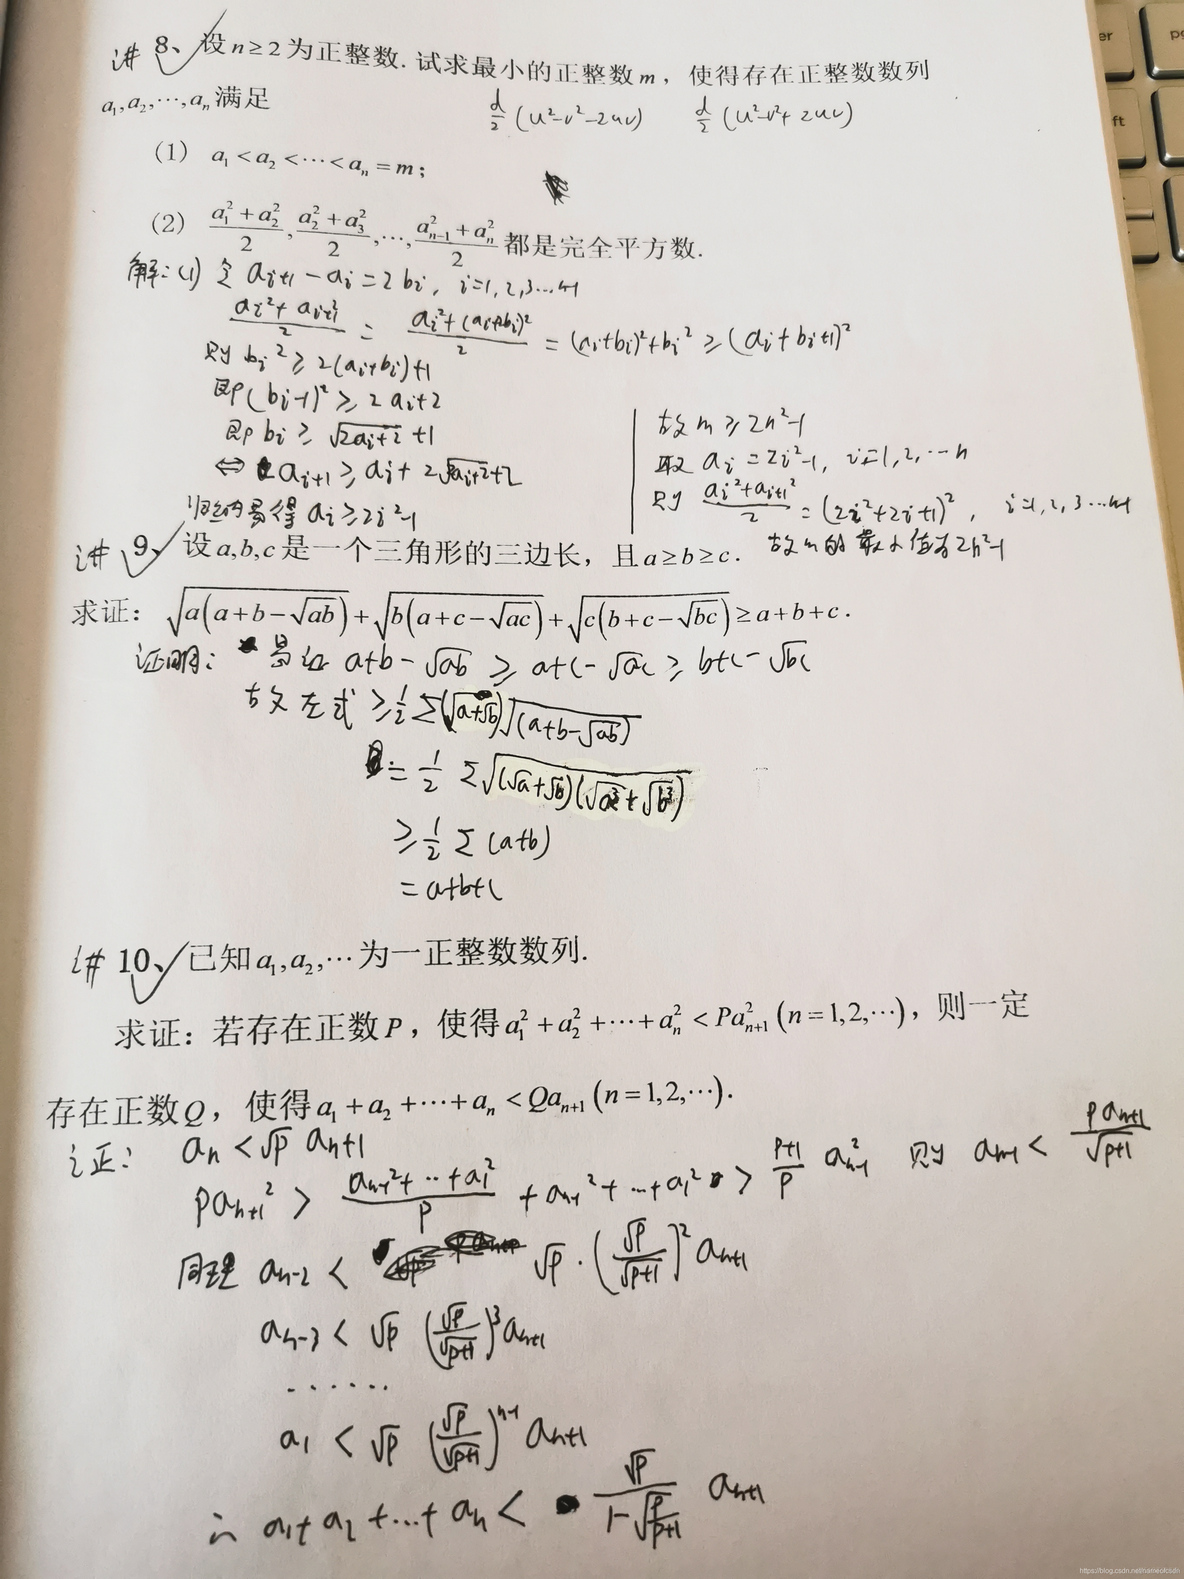 讲 8、设n≥2为正整数. 试求最小的正整数m，使得存在正整数数列
a₁,a₂,⋯,aₙ满足
d/2 (u²-v²-2uv) d/2 (u²-v²+2uv)
(1) a₁<a₂<⋯<aₙ=m；
(2) (a₁²+a₂²)/2, (a₂²+a₃²)/2, ⋯, (aₙ₋₁²+aₙ²)/2 都是完全平方数.
解:(1) 令 aᵢ₊₁-aᵢ=2bᵢ, i=1,2,3...n-1
(aᵢ²+aᵢ₊₁²)/2 = (aᵢ²+(aᵢ+bᵢ)²)/2 = (aᵢ+bᵢ)²+bᵢ² ≥ (aᵢ+bᵢ+1)²
则 bᵢ² ≥ 2(aᵢ+bᵢ)+1
即 (bᵢ-1)² ≥ 2aᵢ+2
即 bᵢ ≥ √(2aᵢ+2) +1
⇔ aᵢ₊₁ ≥ aᵢ+2√(2aᵢ+2)+2
归纳易得 aᵢ≥2i²-1
故 m≥2n²-1
取 aᵢ=2i²-1, i=1,2,⋯n
则 (aᵢ²+aᵢ₊₁²)/2 = (2i²+2i+1)², i=1,2,3...n-1
故m的最小值为2n²-1
讲 9、设a,b,c是一个三角形的三边长，且a≥b≥c.
求证：√(a(a+b-√ab))+√(b(a+c-√ac))+√(c(b+c-√bc))≥a+b+c.
证明: 易证 a+b-√ab ≥ a+c-√ac ≥ b+c-√bc
故左式 ≥ 1/2 Σ(√a+√b)√(a+b-√ab)
= 1/2 Σ√((√a+√b)(√a³+√b³))
≥ 1/2 Σ(a+b)
= a+b+c
讲 10、已知a₁,a₂,⋯为一正整数数列.
求证：若存在正数P，使得a₁²+a₂²+⋯+aₙ²<Paₙ₊₁²(n=1,2,⋯)，则一定
存在正数Q，使得a₁+a₂+⋯+aₙ<Qaₙ₊₁(n=1,2,⋯).
证: aₙ<√p aₙ₊₁
paₙ₊₁² > (aₙ₋₁²+⋯+a₁²)/p + aₙ₋₁²+⋯+a₁² > (p+1)/p aₙ₋₁² 则 aₙ₋₁ < paₙ₊₁/√(p+1)
同理 aₙ₋₂ < √p·(√p/√(p+1))² aₙ₊₁
aₙ₋₃ < √p (√p/√(p+1))³ aₙ₊₁
......
a₁ < √p (√p/√(p+1))ⁿ⁻¹ aₙ₊₁
∴ a₁+a₂+⋯+aₙ < √p/(1-√(p/(p+1))) aₙ₊₁